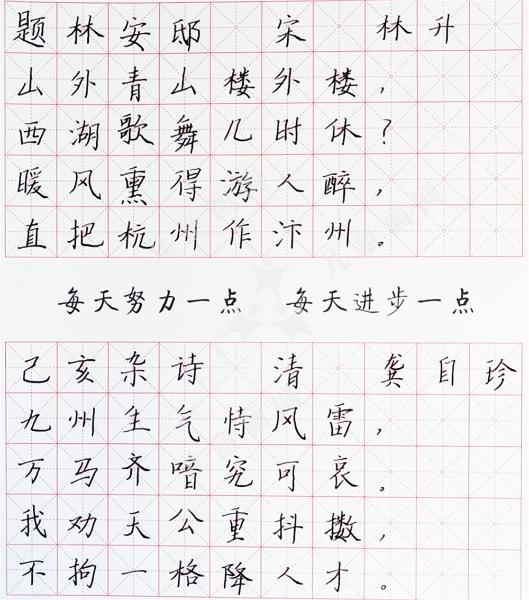 题林安邸 宋 林升
山外青山楼外楼，
西湖歌舞几时休？
暖风熏得游人醉，
直把杭州作汴州。
每天努力一点 每天进步一点
己亥杂诗 清 龚自珍
九州生气恃风雷，
万马齐喑究可哀。
我劝天公重抖擞，
不拘一格降人才。